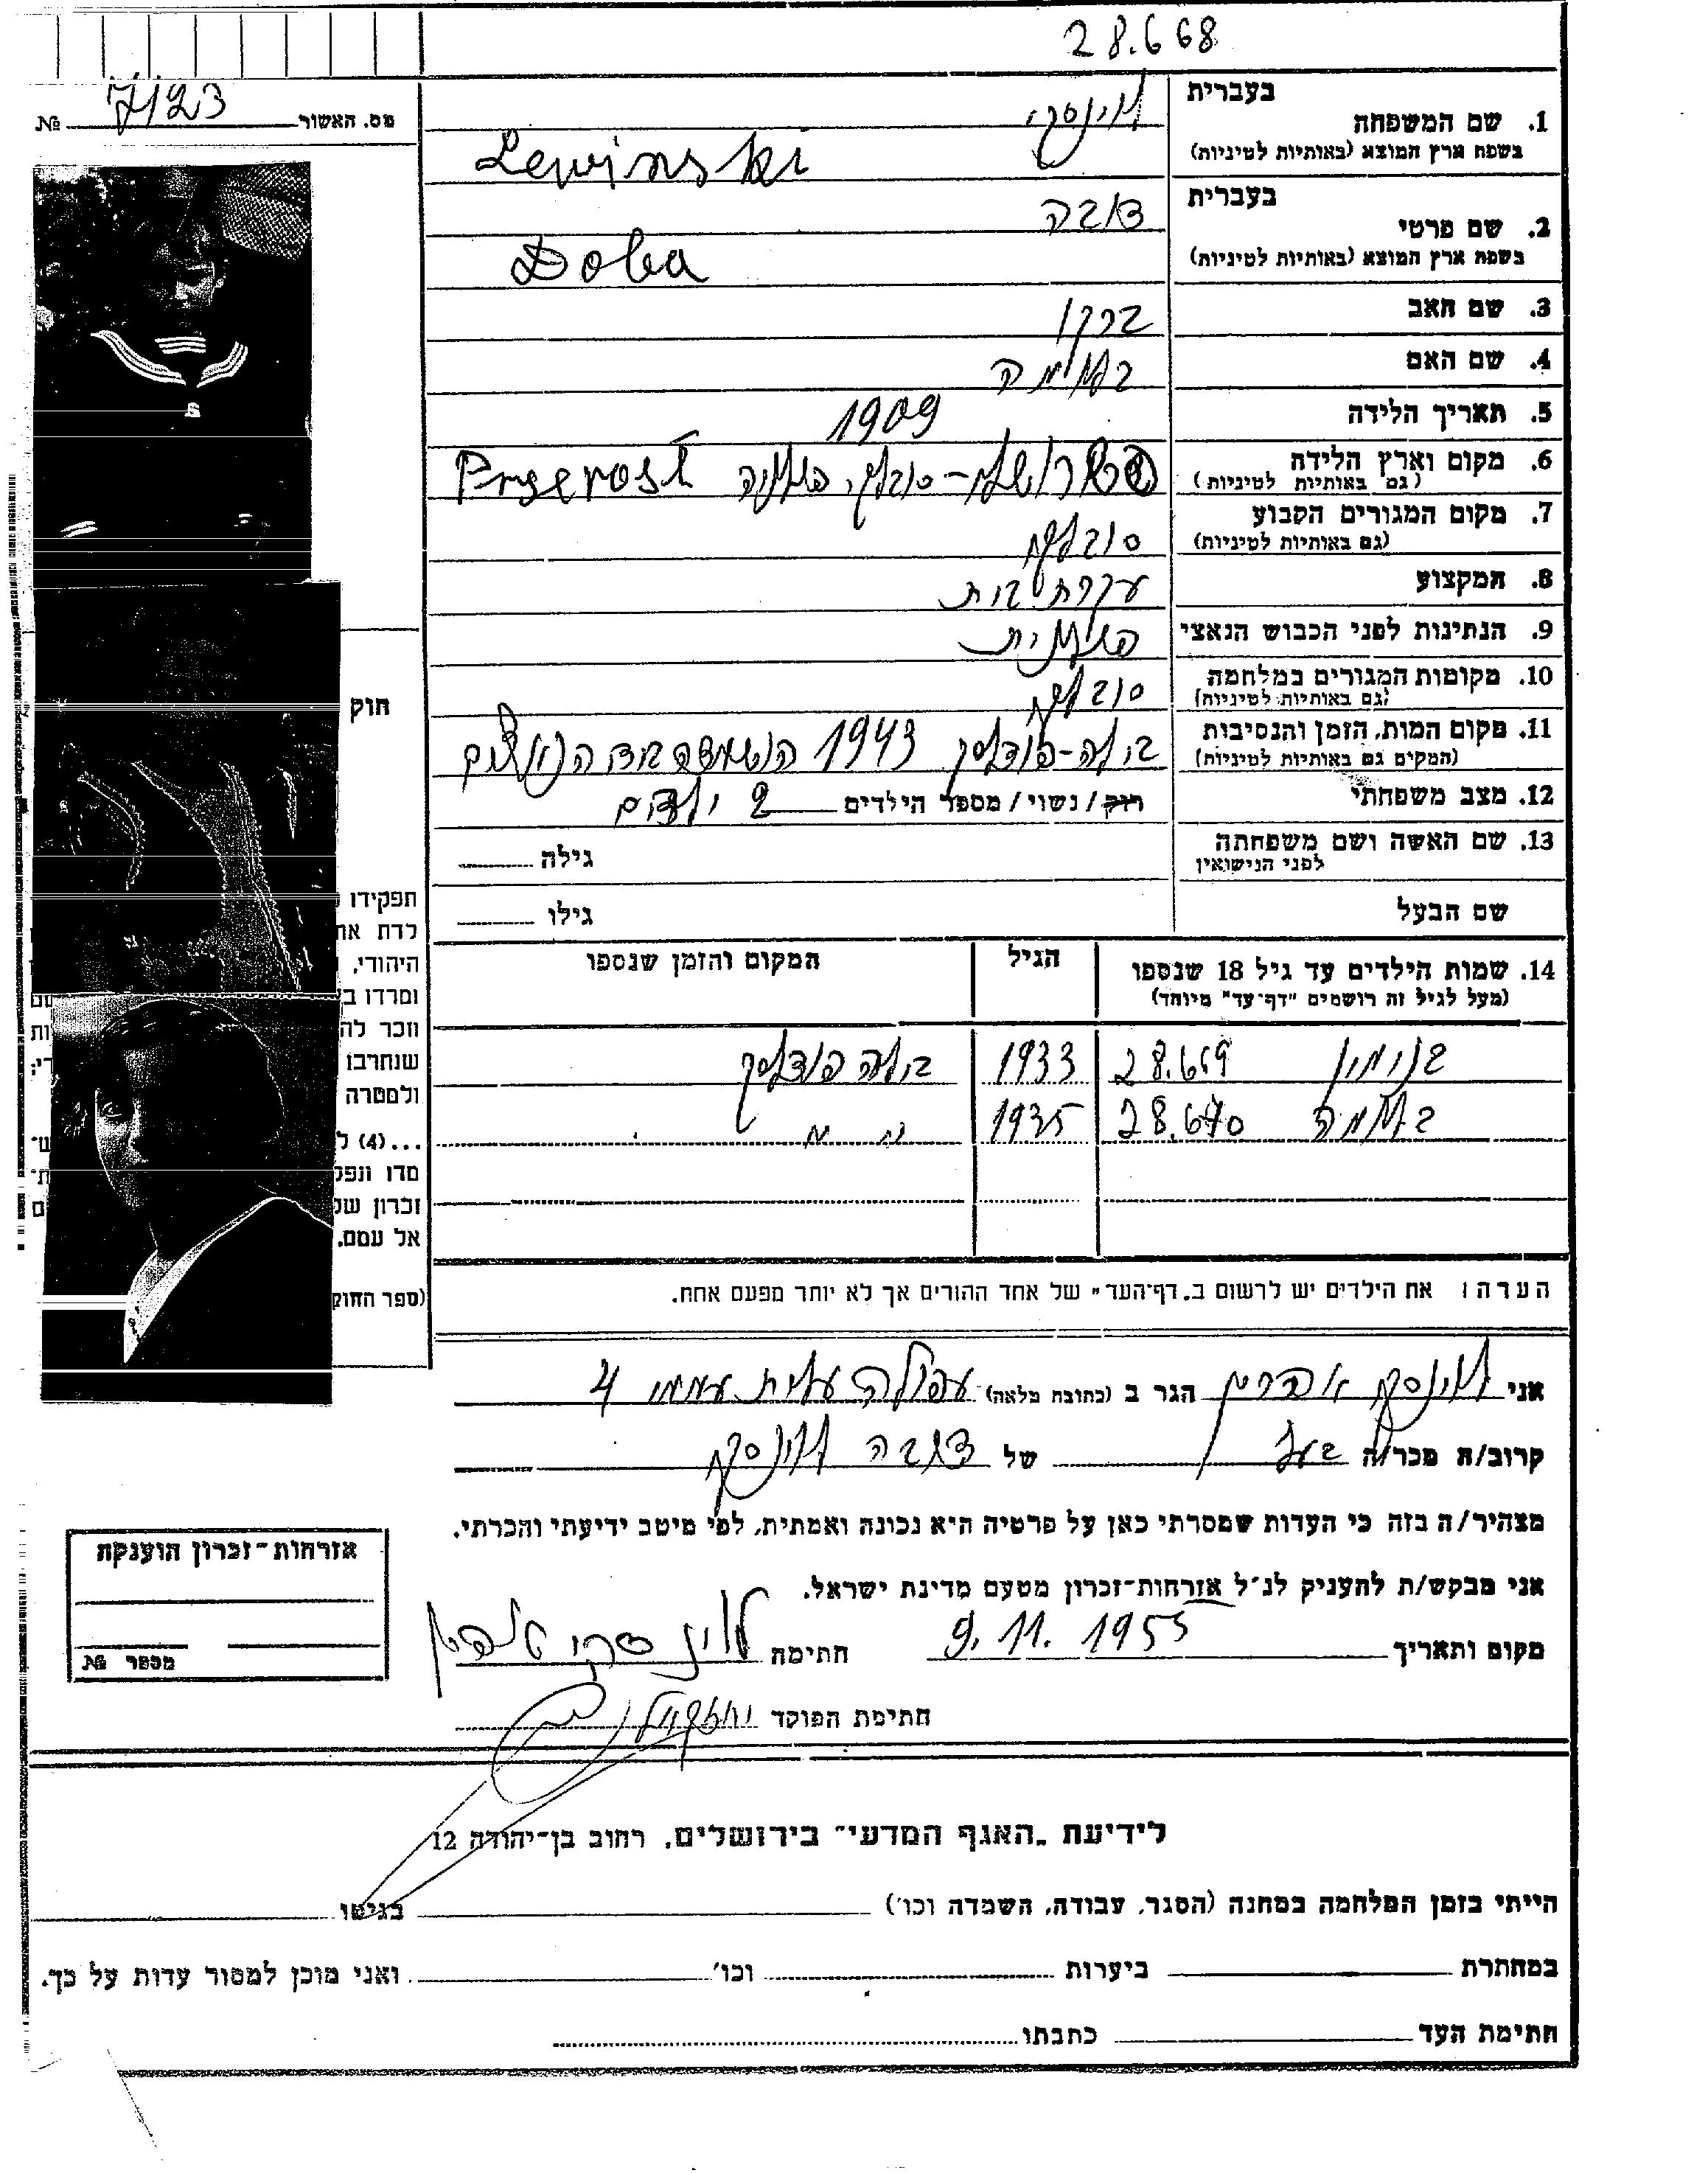 28.668
7123
מס. האשור № 
בעברית
1. שם המשפחה לוינסקי
בשפת ארץ המוצא (באותיות לטיניות) Lewinski
בעברית
2. שם פרטי דובה
בשפת ארץ המוצא (באותיות לטיניות) Doba
3. שם האב
4. שם האם
5. תאריך הלידה 1909
6. מקום וארץ הלידה
(גם באותיות לטיניות) Prserost
7. מקום המגורים הקבוע סובלקי
(גם באותיות לטיניות)
8. המקצוע עקרת בית
9. הנתינות לפני הכבוש הנאצי פולנית
10. מקומות המגורים במלחמה סובלקי
(גם באותיות לטיניות)
11. מקום המות, הזמן והנסיבות בילה-פודלסק 1943
(המקים גם באותיות לטיניות)
12. מצב משפחתי רוק / נשוי / מספר הילדים 2 ילדים
13. שם האשה ושם משפחתה גילה
לפני הנישואין
שם הבעל גילו
14. שמות הילדים עד גיל 18 שנספו הגיל המקום והזמן שנספו
(מעל לגיל זה רושמים "דף-עד" מיוחד)
בנימין 28.669 1933 בילה פודלסק
28.670 1935
הערה: את הילדים יש לרשום ב„דף-העד" של אחד ההורים אך לא יותר מפעם אחת.
חוק
תפקידו
לדת את
היהודי,
ומרדו
וזכר
שנחרבו
ולמטרה
...(4)
סדו ונפל
זכרון של
אל עמם.
(ספר החוק
אני לוינסקי אברהם הגר ב (כתובת מלאה) עפולה עלית 4
קרוב/ה מכר/ה בעל של דובה לוינסקי
מצהיר/ה בזה כי העדות שמסרתי כאן על פרטיה היא נכונה ואמתית, לפי מיטב ידיעתי והכרתי.
אני מבקש/ת להעניק לנ"ל אזרחות-זכרון מטעם מדינת ישראל.
מקום ותאריך 9.11.1955 חתימה לוינסקי
חתימת הפוקד יחזקאל
אזרחות-זכרון הוענקה
מספר №
לידיעת „האגף המדעי" בירושלים, רחוב בן-יהודה 12
הייתי בזמן המלחמה במחנה (הסגר, עבודה, השמדה וכו') בגיטו
במחתרת ביערות וכו' ואני מוכן למסור עדות על כך.
חתימת העד כתבתו